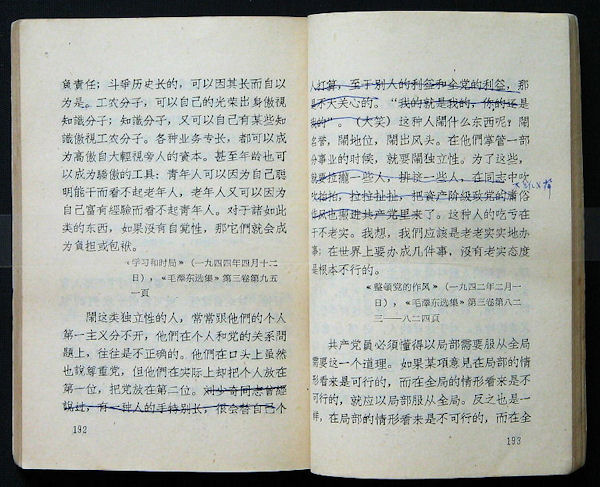 負責任；斗爭历史长的，可以因其长而自以
为是。工农分子，可以自己的光荣出身傲視
知識分子；知識分子，又可以自己有某些知
識傲视工农分子。各种业务专长，都可以成
为高傲自大輕視旁人的資本。甚至年龄也可
以成为驕傲的工具：青年人可以因为自己聪
明能干而看不起老年人，老年人又可以因为
自己富有經驗而看不起青年人。对于諸如此
类的东西，如果沒有自覚性，那它們就会成
为負担或包袱。
《学习和时局》（一九四四年四月十二
日），《毛澤东选集》第三卷第九五
一頁
鬧这类独立性的人，常常跟他們的个人
第一主义分不开，他們在个人和党的关系問
題上，往往是不正确的。他們在口头上虽然
也說尊重党，但他們在实际上却把个人放在
第一位，把党放在第二位。刘少奇同志曾經
說过，有一种人的手特別长，很会替自己个
192
人打算，至于別人的利益和全党的利益，那
是不大关心的。“我的就是我的，你的还是
我的”。（大笑）这种人鬧什么东西呢？鬧
名誉，鬧地位，鬧出风头。在他們掌管一部
份事业的时候，就要鬧独立性。为了这些，
就要拉攏一些人，排挤一些人，在同志中吹
吹拍拍，拉拉扯扯，把資产阶級政党的庸俗
作风也搬进共产党里来了。这种人的吃亏在
于不老实。我想，我們应該是老老实实地办
事；在世界上要办成几件事，沒有老实态度
是根本不行的。
《整頓党的作风》（一九四二年二月一
日），《毛澤东选集》第三卷第八二
三——八二四頁
共产党員必須懂得以局部需要服从全局
需要这一个道理。如果某項意見在局部的情
形看来是可行的，而在全局的情形看来是不
可行的，就应以局部服从全局。反之也是一
样，在局部的情形看来是不可行的，而在全
193